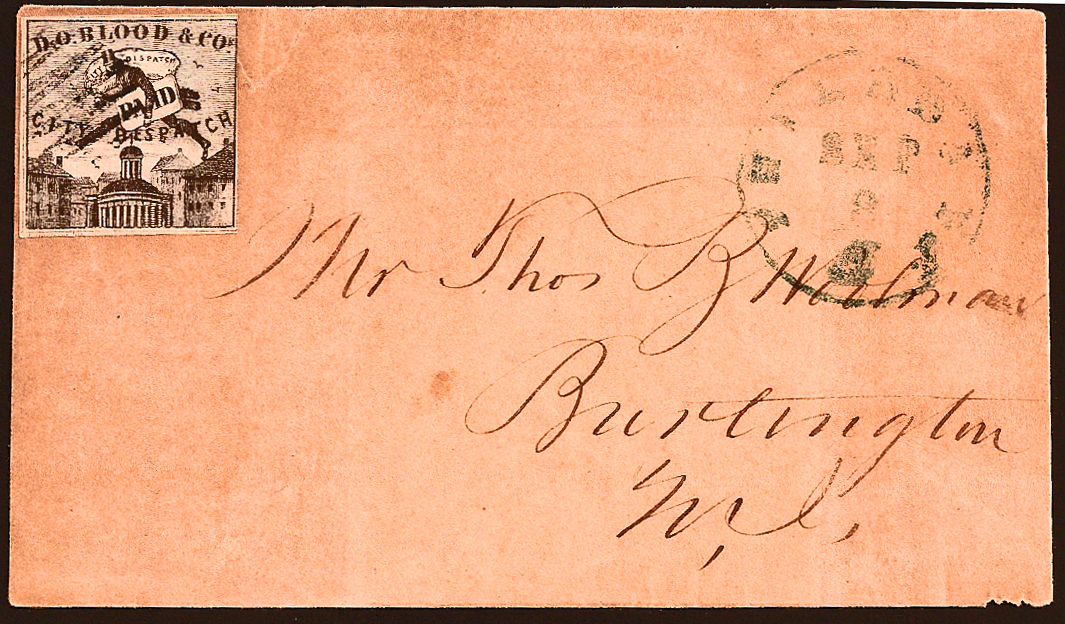 D.O. BLOOD & CO.
DISPATCH
PAID
CITY DESPATCH
SEP
Mr Thos B Woolman
Burlington
N, J,